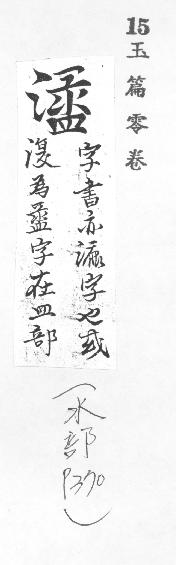 15 玉篇零卷
字書亦漉字也或
復為盝字在皿部
(水部P370)